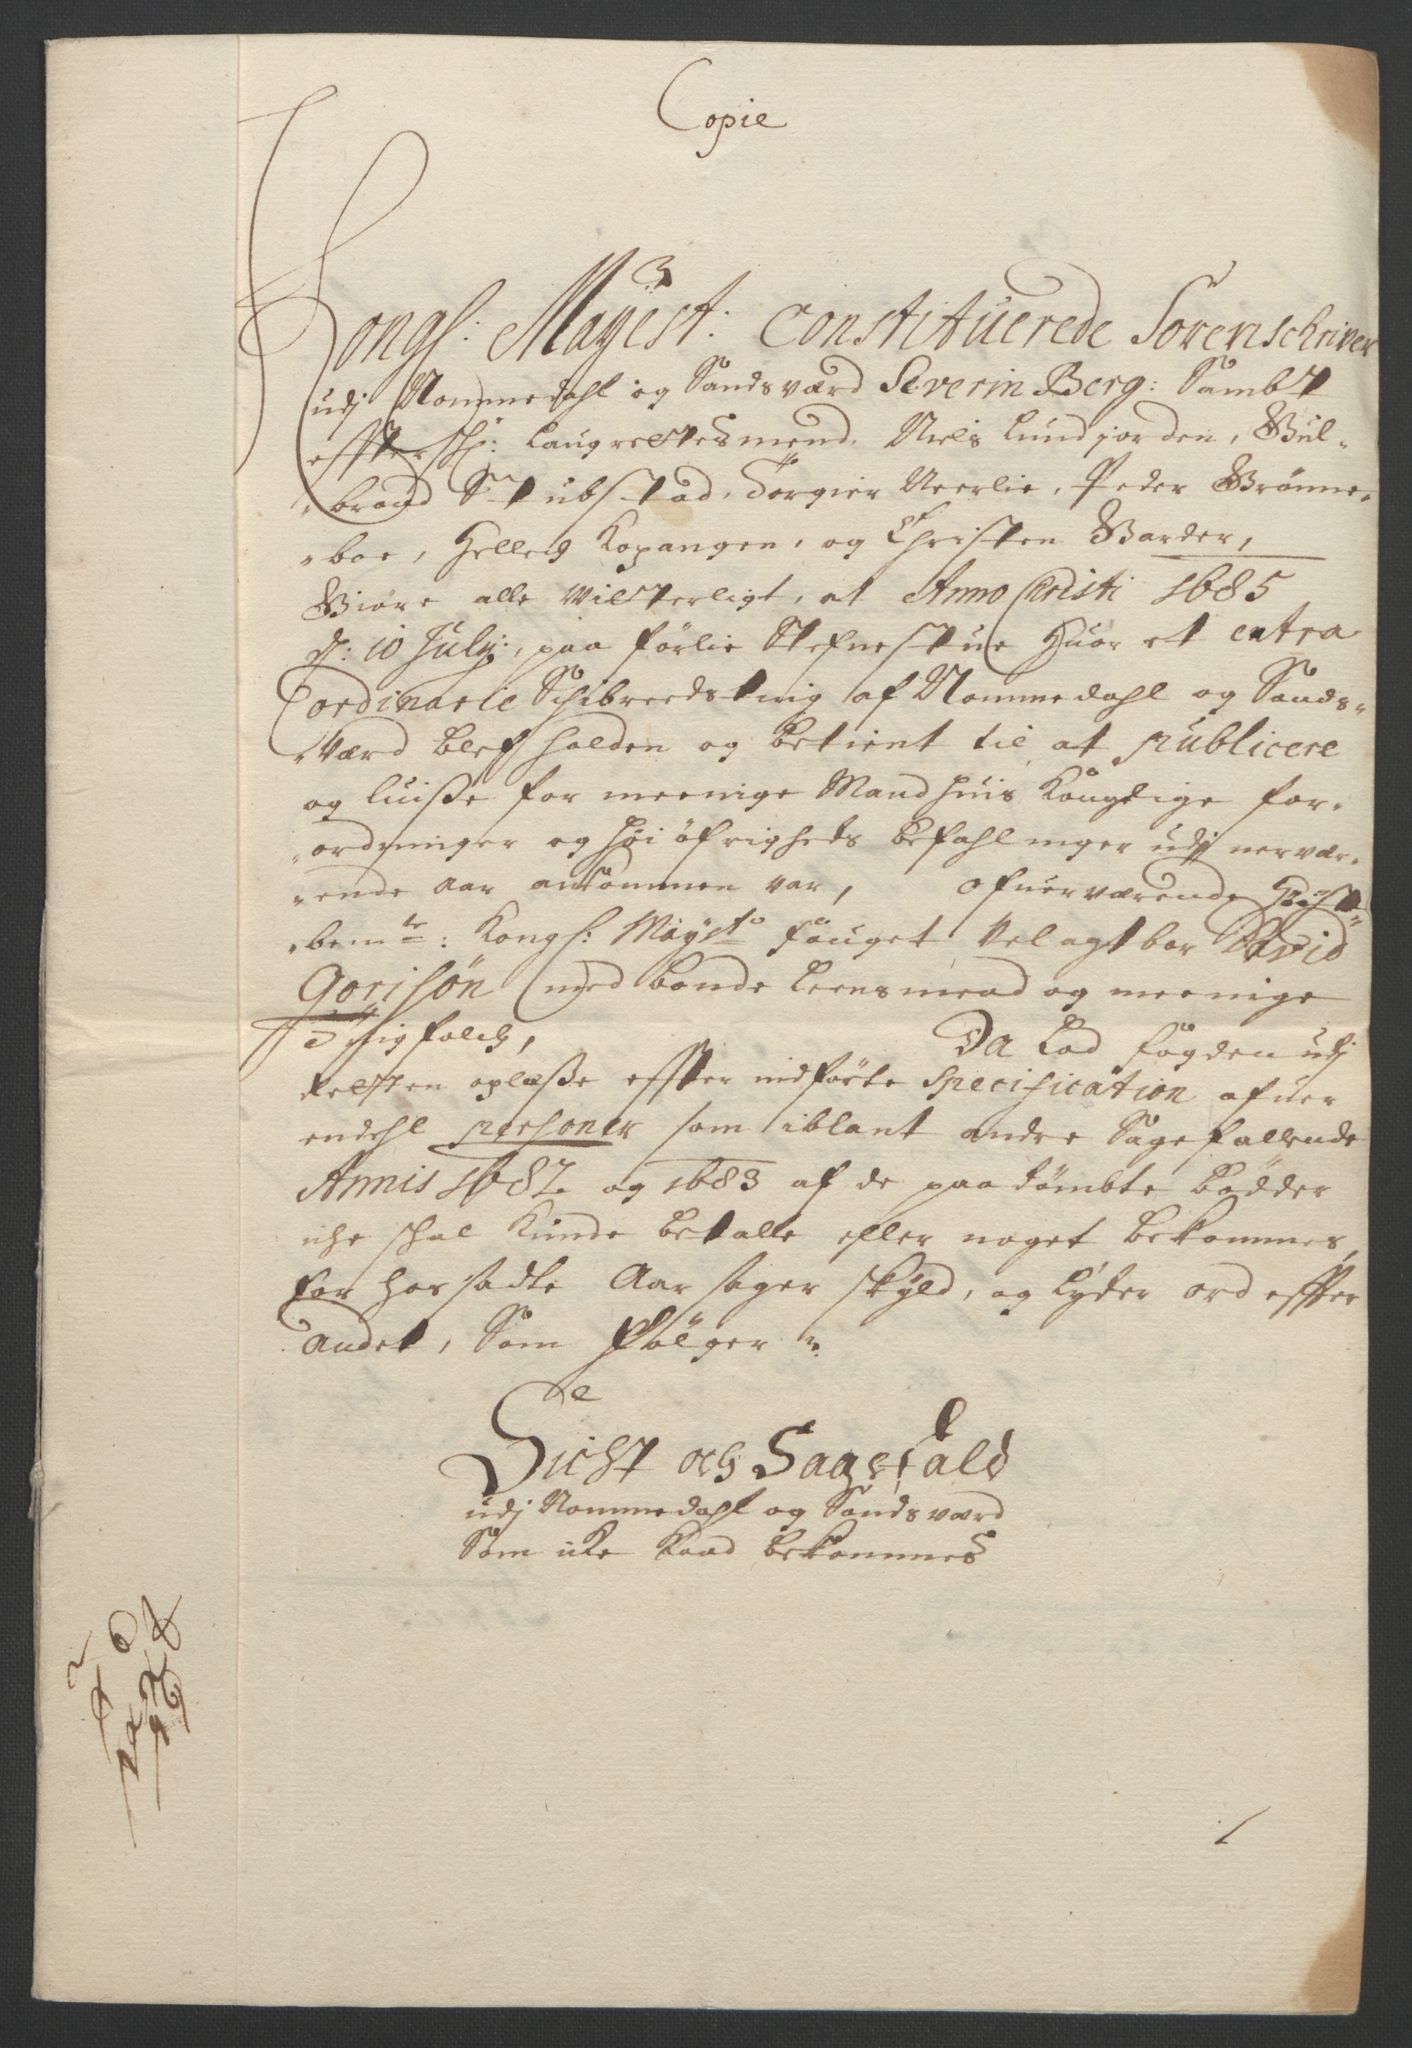 Copie
Kongl: Mayest: Constituerede Sorenschriver
udj Nommedahl og Sandsværd Severin Berg: Sambt
effterschr: Laugrettesmend, Niels Lundjorden, Gul-
-brand Stubstad, Torgier Neerlie, Peder Brönne-
-boe, Helleg Kopangen, og Christen Barder,
Giöre alle Vitterligt, at Anno Christi 1685
d: 10 July:, paa förlie Stefnestue Huor et extra
ordinarie Schibreedsting af Nommedahl og Sands-
-Værd blef holden og betient til at publicere
og luisße for meenige Mand huis Kongelige for-
-ordninger og höi öfrigheds befahlninger udj nervær-
-ende Aar ankommen var, ofuerværende Höist-
-bemte: Kongl: Mayst: fouget Velagtbar David
Gorisön med bonde Leensmend og meenige
Tingfolck, Da Lod fogden udj
Retten oplæße effter indförte Specification ofuer
endehl personer som iblant andre Sagefallende
Annis 1682 og 1683 af de paadömbte bödder
iche schal kunde betalle eller noget bekommes,
for hos satte Aarsager skyld, og lyder ord effter
andet, Som fölger
Sicht och Sagefald
udj Nommedahl og Sandsværd
Som icke kand bekommes
1